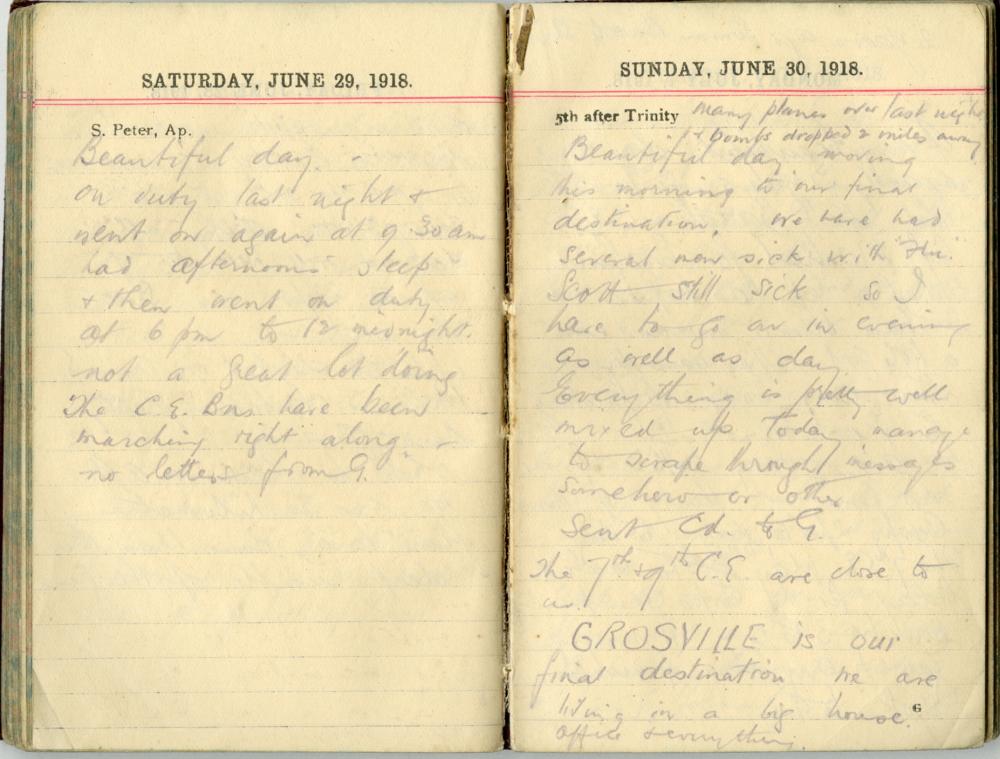 SATURDAY, JUNE 29, 1918.
S. Peter, Ap.
Beautiful day. -
on duty last night &
went on again at 9.30 am
had afternoons sleep
& then went on duty
at 6 pm to 12 midnight.
not a great lot doing
The C.E. Bns have been
marching right along. -
no letters from G.
SUNDAY, JUNE 30, 1918.
5th after Trinity many planes over last night
& bombs dropped 2 miles away
Beautiful day moving
this morning to our final
destination. We have had
several new sick with "Flu".
Scott still sick so I
have to go on in evening
as well as day
Everything is pretty well
mixed up today manage
to scrape through messages
somehow or other
Sent Cd. to G.
The 7th & 9th C.E. are close to
us.
GROSVILLE is our
final destination we are
living in a big house.
office & everything.
6